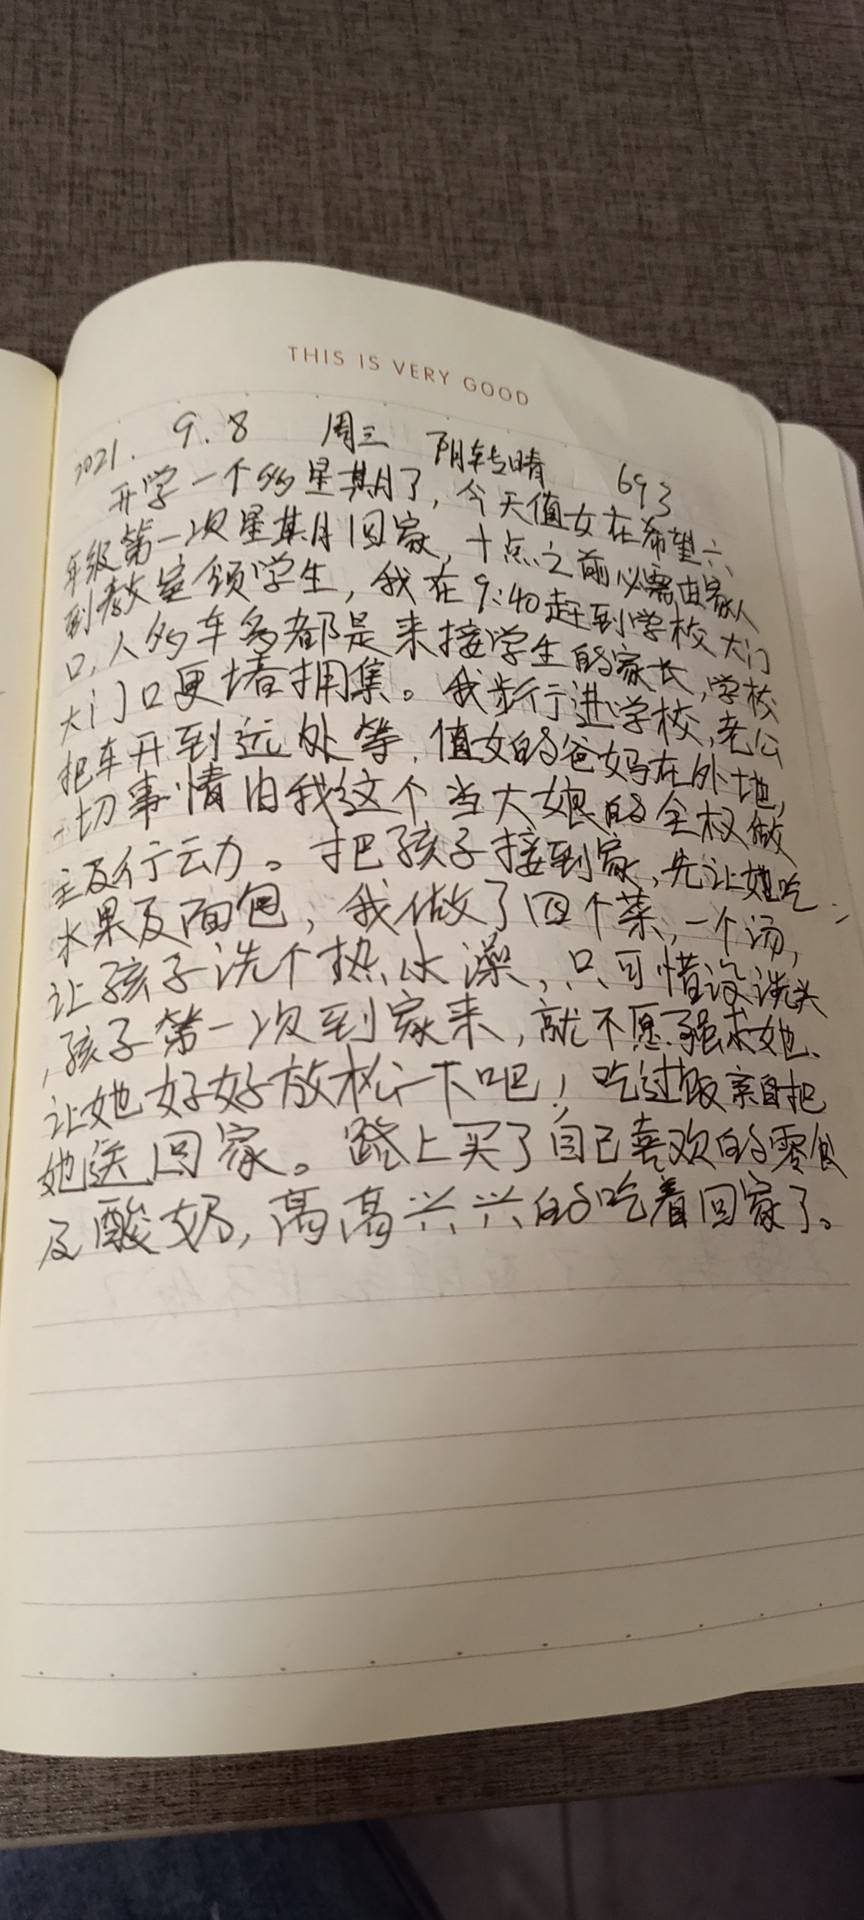 THIS IS VERY GOOD
2021. 9.8 周三 阴转晴 693
开学一个多星期了，今天值女在希望六
年级第一次星期回家，十点之前必需由家人
到教室领学生，我在9:40赶到学校大门
口，人多车多都是来接学生的家长，学校
大门口更堵拥集。我步行进学校，老公
把车开到远处等，值女的爸妈在外地，
一切事情由我这个当大娘的全权做
主及行动。把孩子接到家，先让她吃
水果及面包，我做了四个菜，一个汤，
让孩子洗个热水澡，只可惜没洗头
，孩子第一次到家来，就不愿强求她、
让她好好放松一下吧！吃过饭亲自把
她送回家。路上买了自己喜欢的零食
及酸奶，高高兴兴的吃着回家了。